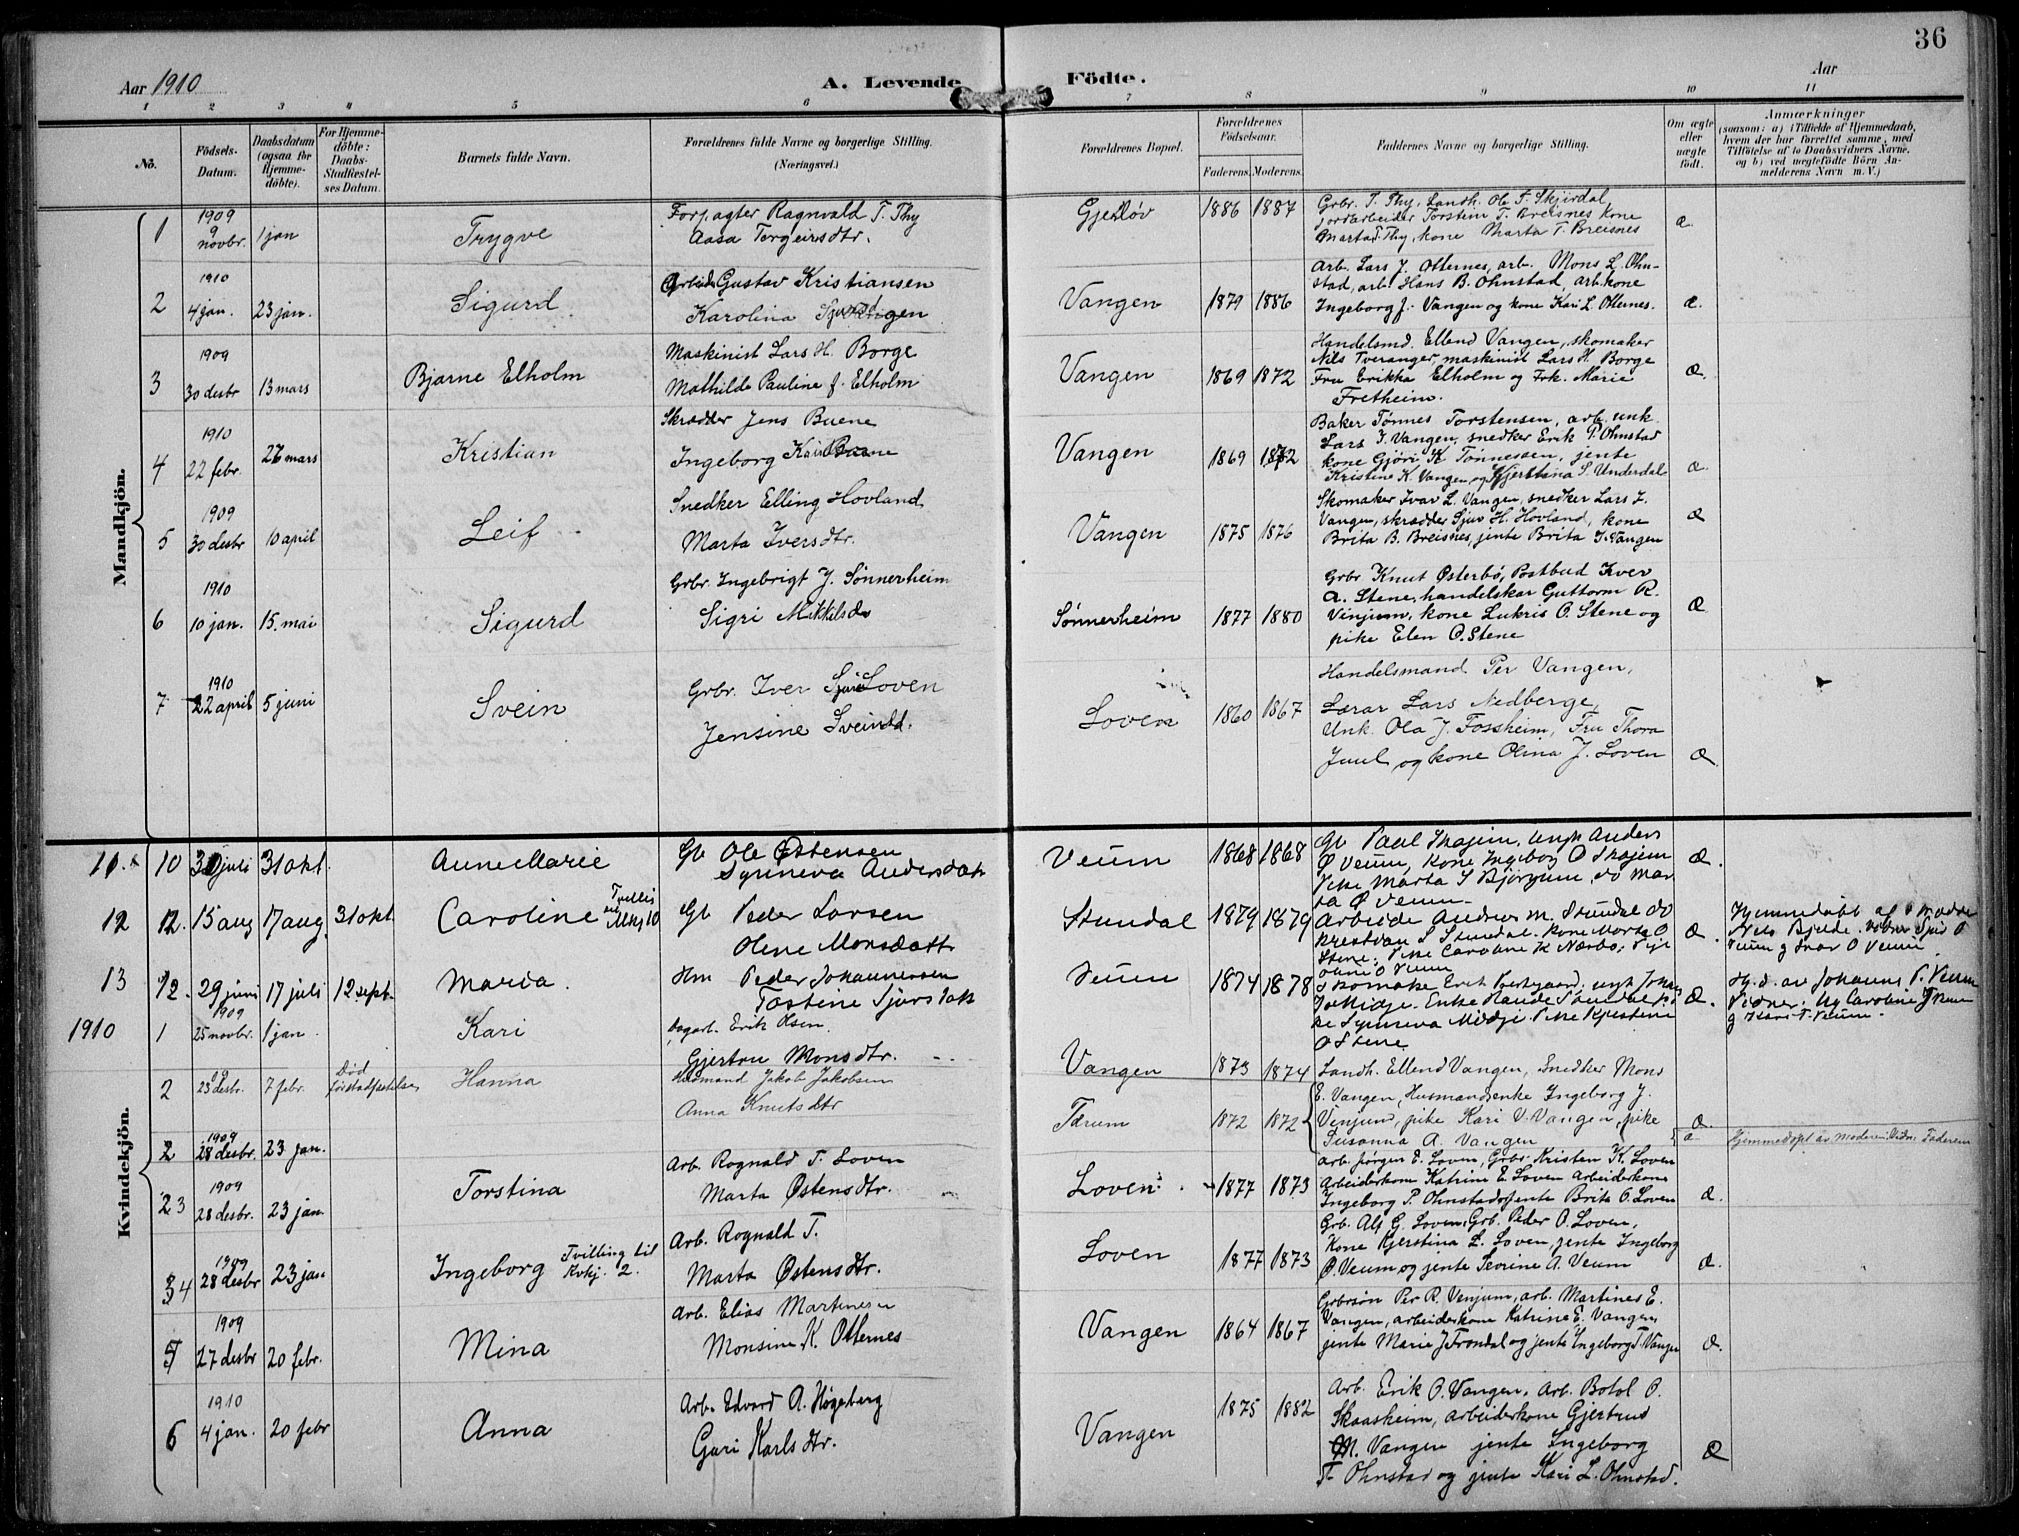 36
Aar 1910
A. Levende Födte.
Aar
1 2 3 4 5 6 7 8 9 10 11
No.
Födsels-Datum.
Daabsdatum (ogsaa for Hjemmedöbte).
For Hjemmedöbte: Daabs-Stadfæstelses Datum.
Barnets fulde Navn.
Forældrenes fulde Navne og borgerlige Stilling.
(Næringsvei.)
Forældrenes Bopæl.
Forældrenes Födselsaar.
Faderens. Moderens.
Faddernes Navne og borgerlige Stilling.
Om ægte eller uægte födt.
Anmærkninger
(saasom: a) i Tilfælde af Hjemmedaab, hvem der har forrettet samme, med Tilföielse af to Daabsvidners Navne, og b) ved uægtefödte Börn Anmelderens Navn m. V.)
Mandkjön.
1 1909 9 novbr. 1 jan Trygve
Forpagter Ragnvald T. Thy
Aasa Torgeirsdtr.
Gjesløv 1886 1887
Grbr. T. Thy, Landh. Ole T. Skjirdal,
jordarbeider Torstein T. Breisnes kone
Marta T. Thy, kone Marta T. Breisnes
æ.
2 1910 4 jan. 23 jan. Sigurd
Arbeid. Gustav Kristiansen
Karolina
Vangen 1879 1886
Arb. Lars J. Otternes, arb. Mons L. Ohn-
stad, arb. Hans B. Ohnstad, arb.kone
Ingeborg J. Vangen og kone Kari L. Otternes.
æ.
3 1909 30 desbr 13 mars Bjarne Elholm
Maskinist Lars H. Borge
Mathilde Pauline f. Elholm
Vangen 1869 1872
Handelsmd. Ellend Vangen, skomaker
Nils Tveranger, maskinist Lars H. Borge
Fru Erikka Elholm og Frk. Marie
Fretheim.
æ.
4 1910 22 febr. 26 mars Kristian
Skrædder Jens Buene
Ingeborg
Vangen 1869 1872
Baker Tønnes Torstensen, arb. unk.
Lars J. Vangen, snedker Erik P. Ohnstad
kone Gjöri K. Tønnessen, jente
Kristine K. Vangen og Kjerstina S. Underdal
æ.
5 1909 30 desbr 10 april Leif
Snedker Elling Hovland
Marta Iversdtr.
Vangen 1875 1876
Skomaker Ivar L. Vangen, snedker Lars J.
Vangen, skrædder Sjur H. Hovland, kone
Brita B. Breisnes, jente Brita J. Vangen
æ
6 1910 10 jan. 15. mai Sigurd
Grbr. Ingebrigt J. Sønnerheim
Sigri Mikkelsdr
Sønnerheim 1877 1880
Grbr Knut Østerbø, Postbud Iver
A. Stene, handelskar Guttorm R.
Vinjum, kone Lukris O. Stene og
pike Elen O. Stene
æ
7 1910 22 april 5 juni Svein
Grbr. Iver Loven
Jensine Sveinsd.
Loven 1860 1867
Handelsmand Per Vangen,
Lærar Lars Nedberge,
Unk. Ola J. Fossheim, Fru Thora
Juul og kone Olina J. Loven
æ
Kvindekjön.
11 10 juli 31 okt. Anne Marie
Gb Ole Østensen
Synneva Andersdatt
Veum 1868 1868
Ø Veum, kone Ingeborg O Skajem
Pike Marta S Bjørgum, do Mar
ta Ø Veum
æ.
12 12. 15 aug 17 aug. 31 okt. Caroline
Gb Peder Larsen
Olene Monsdatt
Stundal 1879 1879
Arbeide Andreas M. Stundal do
Kristian S Stundal. Kone Marta O
Stene. Pike Caroline K Nærbø,
æ.
Hjemmedøbt af
Nels Bjelde. Vidner Sjur O
Veum og Ivar O Veum
13 12. 29 juni 17 juli 12 sept. Maria.
Hm Peder Johannessen
Tostine Sjursdatt
Veum 1874 1878
O Stene
æ.
Hj. d. av Johannes P. Veum
og Kari T. Veum.
1910 1 1909 25 novbr. 1 jan. Kari
dagarb. Erik Olsen
Gjertru Monsdtr.
Vangen 1873 1874
Landh. Ellend Vangen, Snedker Mons
E. Vangen, Husmandsenke Ingeborg J.
Venjum, pike Kari V. Vangen, pike
Susanna A. Vangen
æ.
2 23 desbr. 7 febr. Død før stadfæstelsen Hanna
Husmand Jakob Jakobsen
Anna Knutsdtr
Tærum 1872 1872
æ
Hjemmedøpt av moderen. Vidne Faderen
2 1909 28 desbr. 23 jan.
23 1909 28 desbr. 23 jan. Torstina
Arb. Rognald T. Loven
Marta Østensdtr.
Loven 1877 1873
Arb. Jørgen E. Loven, Grbr. Kristen K. Loven
Arbeiderkone Katrine E. Loven Arbeiderkone
Ingeborg P. Ohnstad Jente Brita O. Loven
æ.
34 1909 28 desbr 23 jan Ingeborg Tvilling til Kvkj. 2.
Arb. Rognald T.
Marta Østensdtr.
Loven 1877 1873
Grb. Alf G. Loven, Grb. Peder O. Loven,
Kone Kjerstina L. Loven, jente Ingeborg
O. Veum og jente Severine A. Veum
æ.
5 1909 27 desbr 20 febr. Mina
Arb. Elias Martinesen
Monsine K. Otternes
Vangen 1864 1867
Grbrsön Per R. Venjum, arb. Martines E.
Vangen, arbeiderkone Katrine E. Vangen,
jente Marie J. Frondal og jente Ingeborg T. Vangen
æ.
6 1910 4 jan. 20 febr Anna
Arb. Edvard A. Høgeberg
Guri Karlsdtr.
Vangen 1875 1882
Arb. Erik O. Vangen, Arb. Botol O.
Skaasheim, arbeiderkone Gjertrud
M. Vangen jente Ingeborg
T. Ohnstad og jente Kari L. Ohnstad.
æ